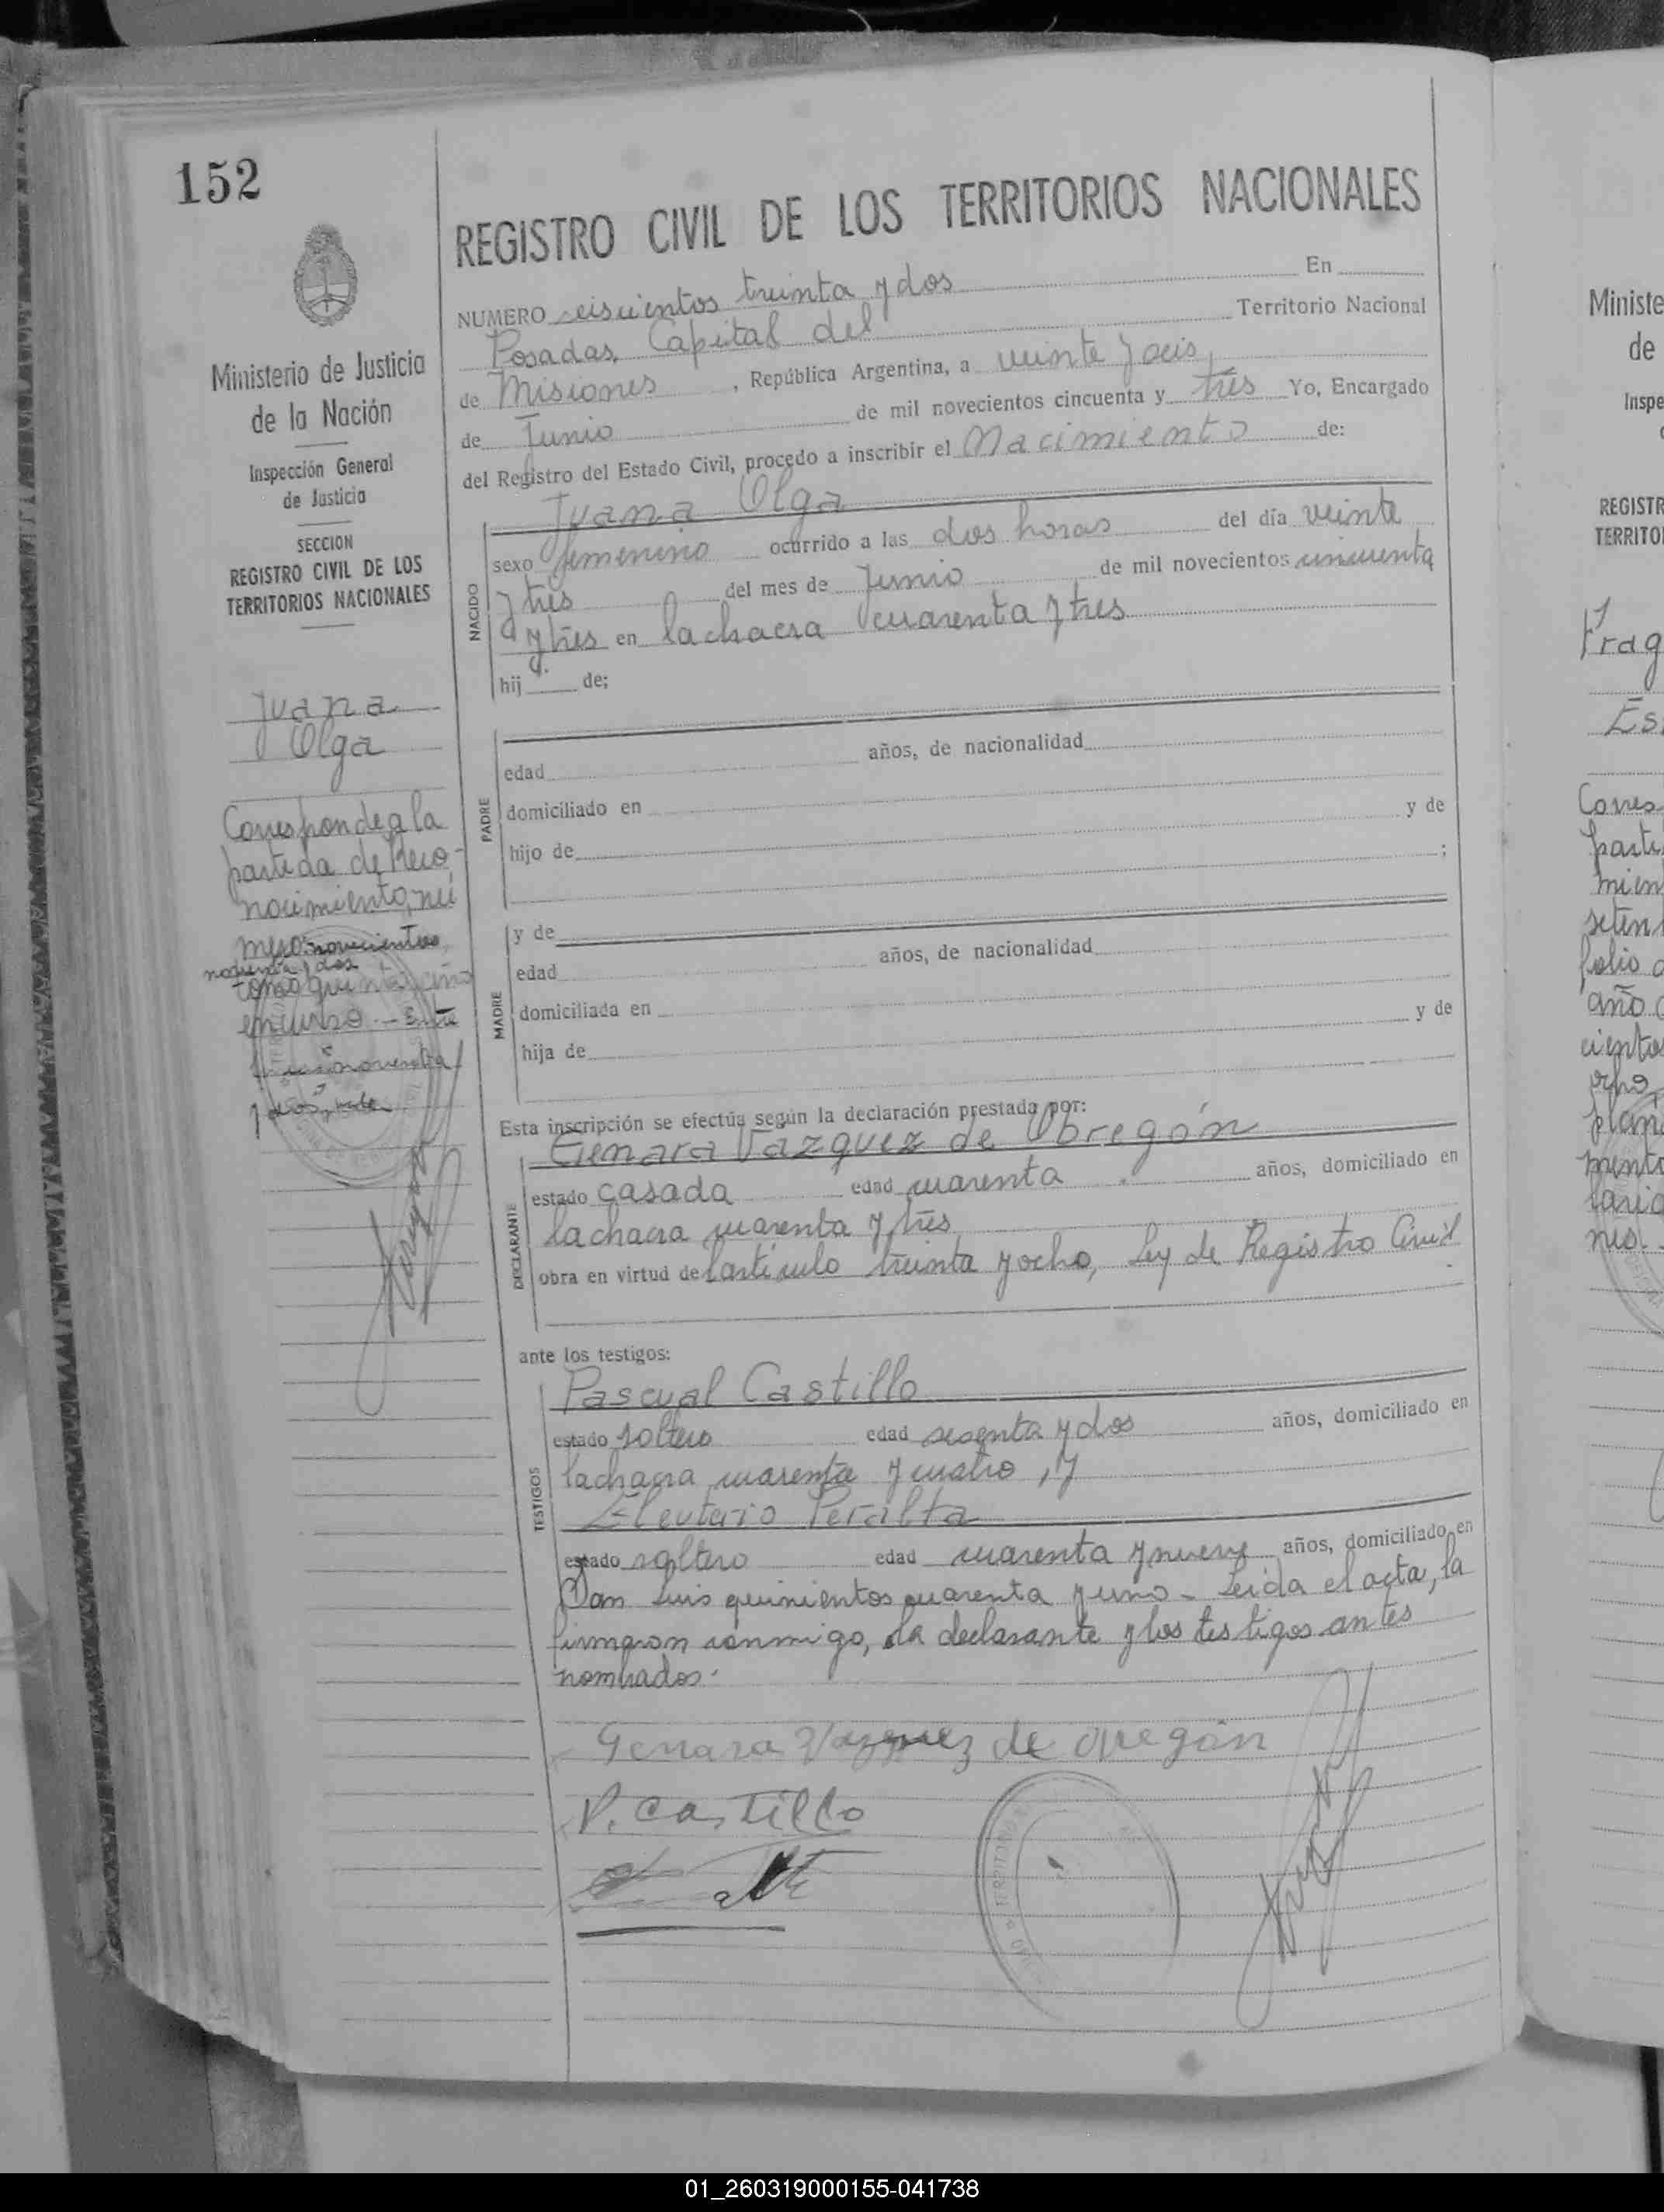 152
Ministerio de Justicia
de la Nación
Inspección General
de Justicia
SECCION
REGISTRO CIVIL DE LOS
TERRITORIOS NACIONALES
Juana
Olga
Corresponde a la
partida de Reco-
nocimiento, nú
mero novecientos
noventa y dos
tomo quinto, año
en curso - Entre
líneas noventa
y dos, vale
REGISTRO CIVIL DE LOS TERRITORIOS NACIONALES
NUMERO seiscientos treinta y dos En
Posadas, Capital del Territorio Nacional
de Misiones, República Argentina, a veinte y seis,
de Junio de mil novecientos cincuenta y tres Yo, Encargado
del Registro del Estado Civil, procedo a inscribir el Nacimiento de:
Juana Olga
NACIDO
sexo femenino ocurrido a las dos horas del día veinte
y tres del mes de Junio de mil novecientos cincuenta
y tres en la chacra cuarenta y tres
hij de;
PADRE
edad años, de nacionalidad
domiciliado en
hijo de y de
;
MADRE
y de
edad años, de nacionalidad
domiciliada en
hija de y de
Esta inscripción se efectúa según la declaración prestada por:
Genara Vazquez de Obregón
DECLARANTE
estado casada edad cuarenta años, domiciliado en
la chacra cuarenta y tres
obra en virtud del artículo treinta y ocho, Ley de Registro Civil
ante los testigos:
Pascual Castillo
TESTIGOS
estado soltero edad sesenta y dos años, domiciliado en
la chacra cuarenta y cuatro, y
Eleuterio Peralta
estado soltero edad cuarenta y nueve años, domiciliado en
San Luis quinientos cuarenta y uno - Leida el acta, la
firmaron conmigo, la declarante y los testigos antes
nombrados.
Genara Vazquez de Obregón
P. Castillo
Ministe
de
Inspe
REGISTR
TERRITO
Frag
Es
Corres
parti
mien
seten
folio
año
ciento
ocho
plan
mento
lario
nes.
01_260319000155-041738